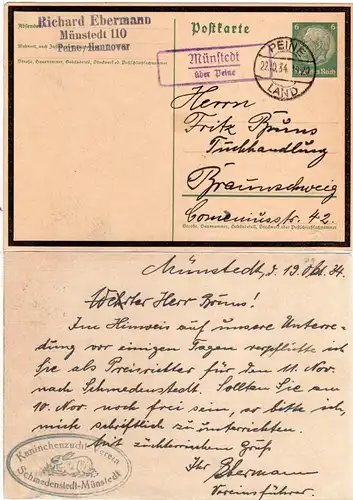 Richard Ebermann
Münstedt 110
Peine/Hannover
Absender:
Postkarte
Münstedt
über Peine
PEINE
LAND
6
6
Deutsches Reich
Herrn
Fritz Bruns
Tuchhandlung
Braunschweig
Comeniusstr. 42.
Straße, Hausnummer, Gebäudeteil, Stockwerk od. Postschließfachnummer
Münstedt, d. 19. Okt. 34.
Werter Herr Bruns!
Im Hinweis auf unsere Unterre-
dung vor einigen Tagen verpflichte ich
Sie als Preisrichter für den 11. Nov.
nach Schmedenstedt. Sollten Sie am
10. Nov. noch frei sein, so bitte ich,
mich schriftlich zu unterrichten.
Mit züchterischem Gruß
Ihr Ebermann
Vereinsführer.
Kaninchenzucht-Verein
Schmedenstedt-Münstedt